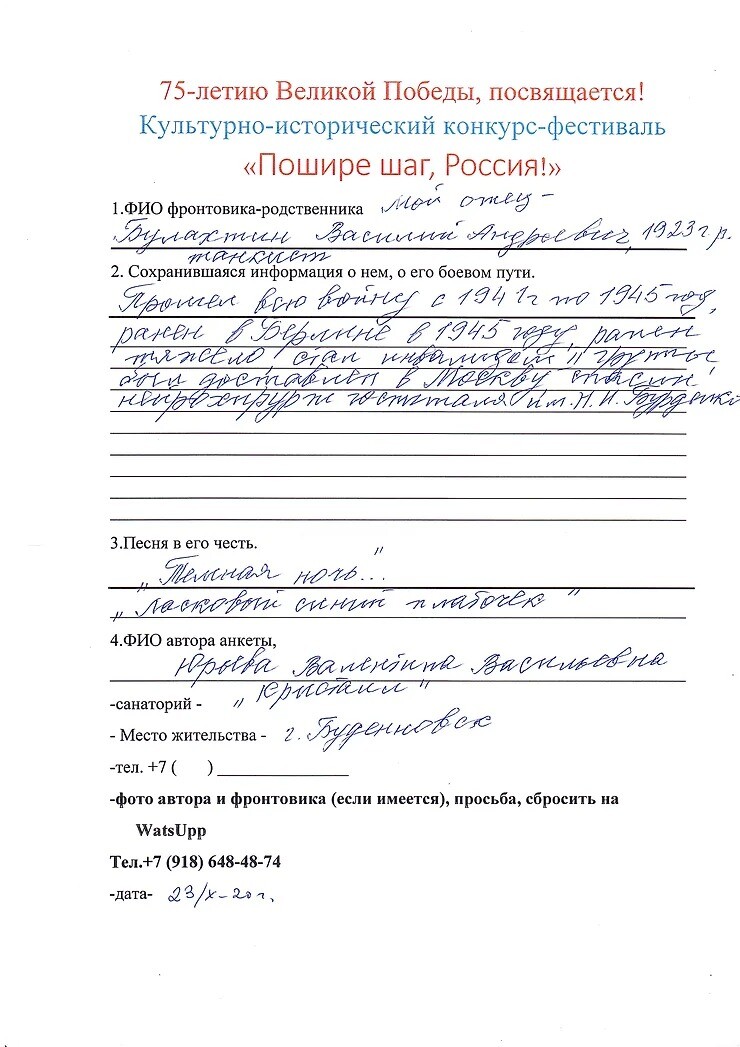 75-летию Великой Победы, посвящается!
Культурно-исторический конкурс-фестиваль
«Пошире шаг, Россия!»
1.ФИО фронтовика-родственника мой отец -
Булахтин Василий Андреевич, 1923 г.р.
танкист
2. Сохранившаяся информация о нем, о его боевом пути.
Прошел всю войну с 1941г по 1945 год,
ранен в Берлине в 1945 году, ранен
тяжело стал инвалидом II группы
был доставлен в Москву, спасли
нейрохирурги госпиталя им. Н. Н. Бурденко
3.Песня в его честь.
„Темная ночь..."
„Ласковый синий платочек"
4.ФИО автора анкеты,
Юрьева Валентина Васильевна
-санаторий - „Кристалл"
- Место жительства - г. Буденновск
-тел. +7 ( ) ______________
-фото автора и фронтовика (если имеется), просьба, сбросить на
WatsUpp
Тел.+7 (918) 648-48-74
-дата- 23/X-20г.